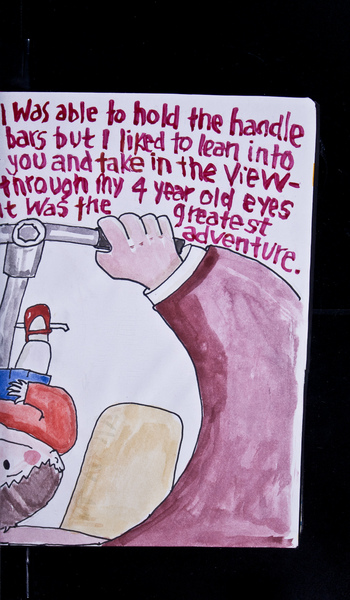 I was able to hold the handle
bars but I liked to lean into
you and take in the view-
through my 4 year old eyes
it was the greatest
adventure.